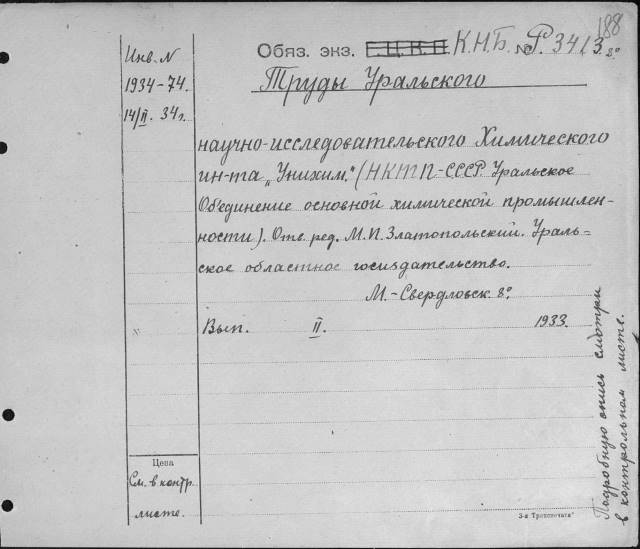 188
Обяз. экз. Г.Ц.К.П. К.Н.Б. № Р. 34/3 8°
Инв. N
1934-74.
14/II. 34г.
Труды Уральского
научно-исследовательского Химического
ин-та „Унихим." (НКТП-СССР. Уральское
Объединение основной химической промышлен-
ности). Отв. ред. М.И. Златопольский. Ураль=
ское областное госиздательство.
М.-Свердловск. 8°.
№ Вып. II. 1933.
Цена
См. в контр.
листе.
Подробную опись смотри
в контрольном листе.